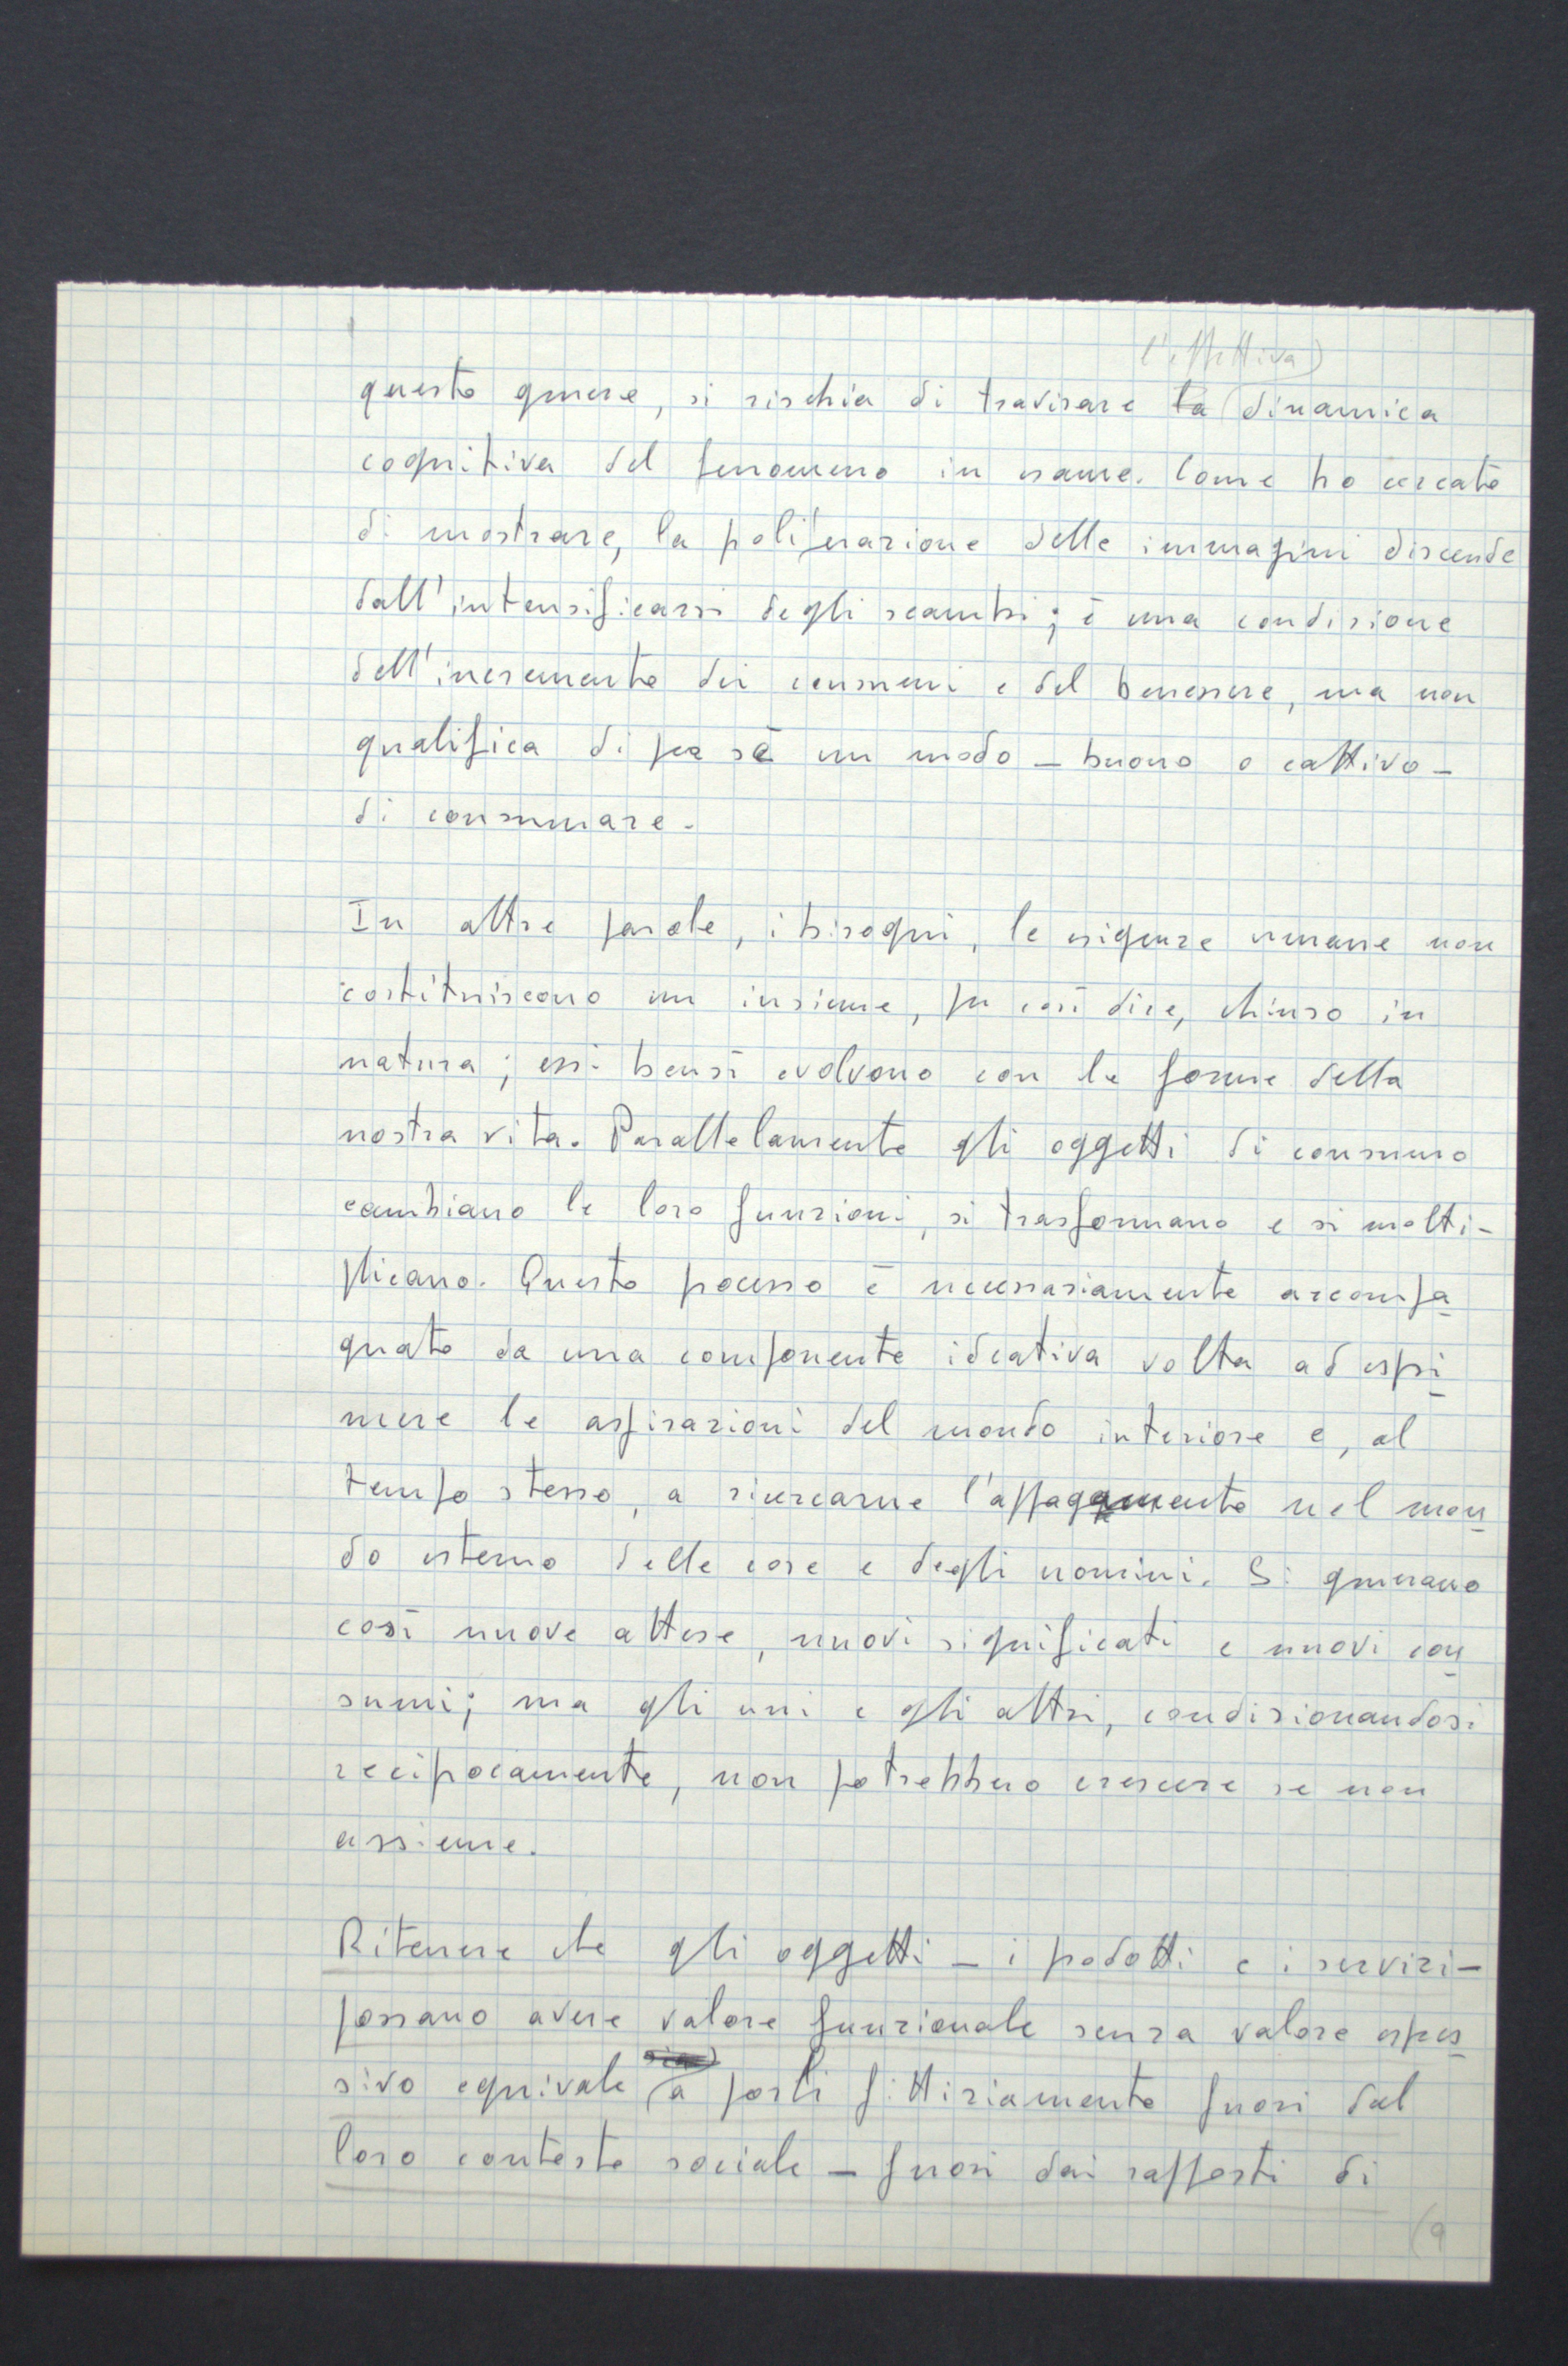 l'effettiva)
questo genere, si rischia di travisare la (dinamica
cognitiva del fenomeno in esame. Come ho cercato
di mostrare, la proliferazione delle immagini discende
dall'intensificarsi degli scambi; è una condizione
dell'incremento dei consumi e del benessere, ma non
qualifica di per sé un modo – buono o cattivo –
di consumare.
In altre parole, i bisogni, le esigenze umane non
costituiscono un insieme, per così dire, chiuso in
natura; essi bensì evolvono con le forme della
nostra vita. Parallelamente gli oggetti di consumo
cambiano le loro funzioni, si trasformano e si molti-
plicano. Questo processo è necessariamente accompa
gnato da una componente ideativa volta ad espri
mere le aspirazioni del mondo interiore e, al
tempo stesso, a ricercarne l'appagamento nel mon
do esterno delle cose e degli uomini. Si generano
così nuove attese, nuovi significati e nuovi con
sumi; ma gli uni e gli altri, condizionandosi
reciprocamente, non potrebbero crescere se non
assieme.
Ritenere che gli oggetti – i prodotti e i servizi –
possano avere valore funzionale senza valore espres
sivo equivale (a porli fittiziamente fuori dal
loro contesto sociale – fuori dai rapporti di
(9